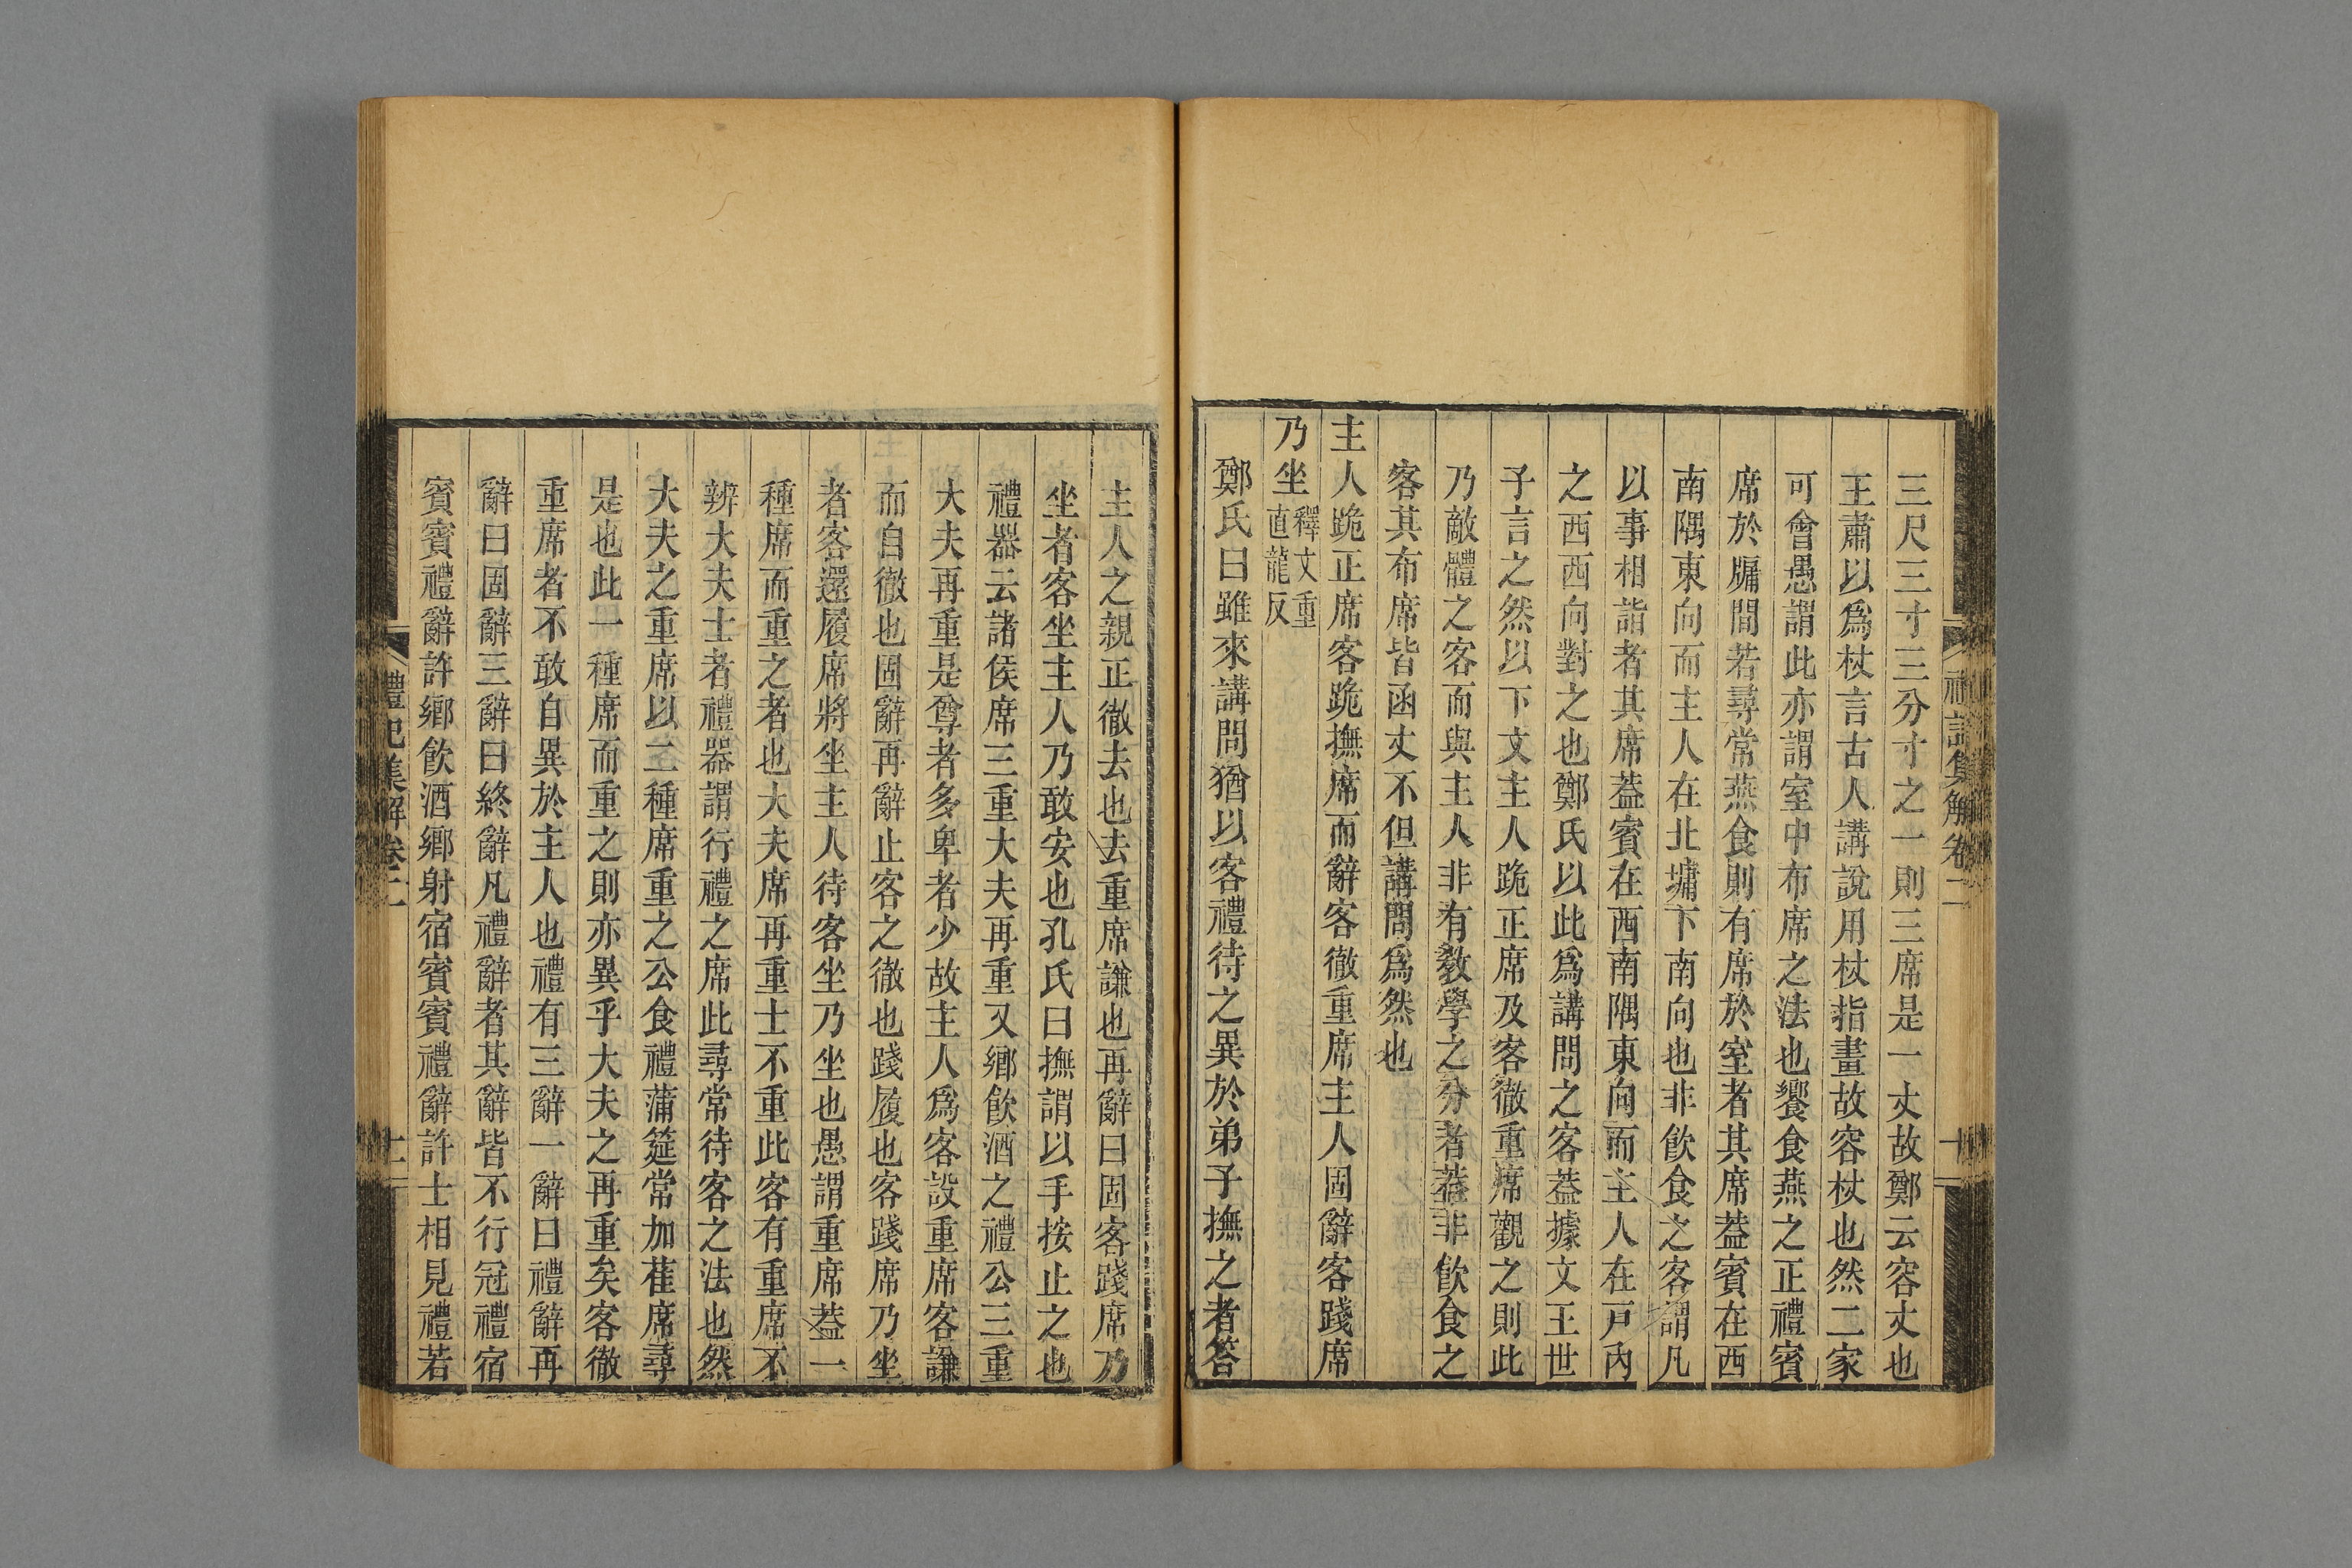 三尺三寸三分寸之一則三席是一丈故鄭云容丈也
王肅以爲杖言古人講說用杖指畫故容杖也然二家
可會愚謂此亦謂室中布席之法也饗食燕之正禮賓
席於牖間若尋常燕食則有席於室者其席葢賓在西
南隅東向而主人在北墉下南向也非飲食之客謂凡
以事相詣者其席葢賓在西南隅東向而主人在戸內
之西西向對之也鄭氏以此爲講問之客葢據文王世
子言之然以下文主人跪正席及客徹重席觀之則此
乃敵體之客而與主人非有敎學之分者葢非飲食之
客其布席皆函丈不但講問爲然也
主人跪正席客跪撫席而辭客徹重席主人固辭客踐席
乃坐釋文重直龍反
鄭氏曰雖來講問猶以客禮待之異於弟子撫之者答
禮記集解卷二
十
主人之親正徹去也去重席謙也再辭曰固客踐席乃
坐者客坐主人乃敢安也孔氏曰撫謂以手按止之也
禮器云諸侯席三重大夫再重又鄉飲酒之禮公三重
大夫再重是尊者多卑者少故主人爲客設重席客謙
而自徹也固辭再辭止客之徹也踐履也客踐席乃坐
者客還履席將坐主人待客坐乃坐也愚謂重席葢一
種席而重之者也大夫席再重士不重此客有重席不
辨大夫士者禮器謂行禮之席此尋常待客之法也然
大夫之重席以二種席重之公食禮蒲筵常加萑席尋
是也此一種席而重之則亦異乎大夫之再重矣客徹
重席者不敢自異於主人也禮有三辭一辭曰禮辭再
辭曰固辭三辭曰終辭凡禮辭者其辭皆不行冠禮宿
賓賓禮辭許鄉飲酒鄉射宿賓賓禮辭許士相見禮若
禮記集解卷二
十一